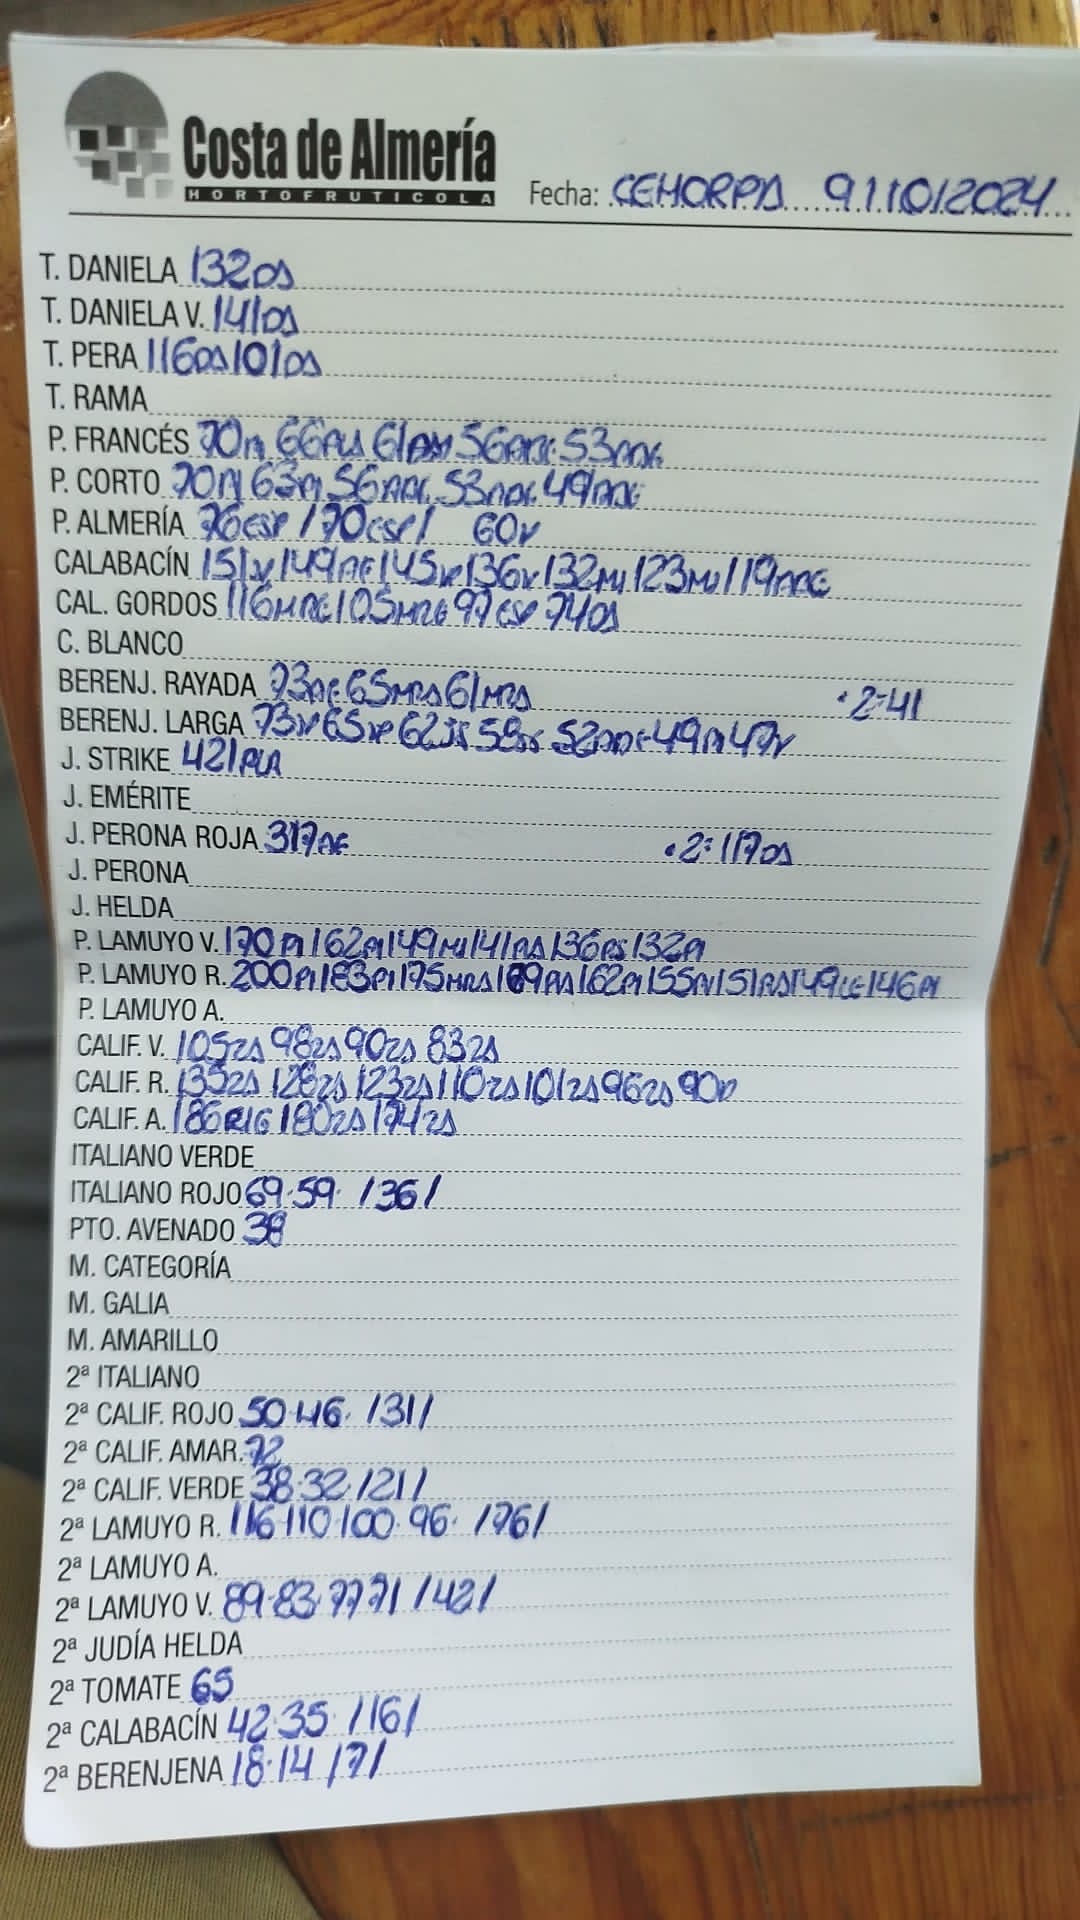 Costa de Almería
HORTOFRUTICOLA
Fecha: CEHORPA 9/10/2024
T. DANIELA 132DS
T. DANIELA V. 141DS
T. PERA 116DS 101DS
T. RAMA
P. FRANCÉS 70 66 61 56 53
P. CORTO 70 63 56 53 49
P. ALMERÍA 76ESP /70ESP/ 60V
CALABACÍN 151 149 145 136 132 123 119
CAL. GORDOS 116 105 97ESP 74DS
C. BLANCO
BERENJ. RAYADA 73 65 61 ·2=41
BERENJ. LARGA 73 65 62 58 52 49 47V
J. STRIKE 421PLA
J. EMÉRITE
J. PERONA ROJA 317AE ·2=117DS
J. PERONA
J. HELDA
P. LAMUYO V. 170PI 162PI 149 141 136 132PI
P. LAMUYO R. 200PI 183PI 175 169 162PI 155 151 149 146PI
P. LAMUYO A.
CALIF. V. 105ZA 98ZA 90ZA 83ZA
CALIF. R. 135ZA 128ZA 123ZA 110ZA 101ZA 96ZA 90V
CALIF. A. 186RIG 180ZA 174ZA
ITALIANO VERDE
ITALIANO ROJO 69·59· /36/
PTO. AVENADO 38
M. CATEGORÍA
M. GALIA
M. AMARILLO
2ª ITALIANO
2ª CALIF. ROJO 50·46· /31/
2ª CALIF. AMAR. 72
2ª CALIF. VERDE 38·32 /21/
2ª LAMUYO R. 116·110·100·96· /76/
2ª LAMUYO A.
2ª LAMUYO V. 89·83·77 71 /42/
2ª JUDÍA HELDA
2ª TOMATE 65
2ª CALABACÍN 42·35· /16/
2ª BERENJENA 18·14 /7/